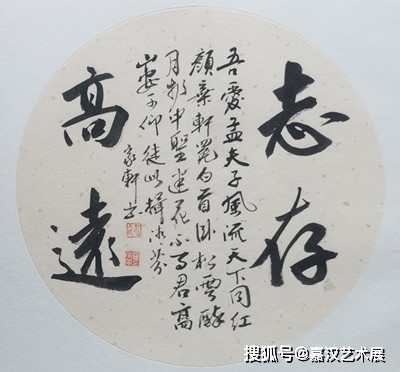 志存
高遠
吾愛孟夫子風流天下同紅
顏棄軒冕白首卧松雲醉
月頻中聖迷花不事君高
山安可仰徒此揖清芬
軒书
搜狐号@嘉汉艺术展